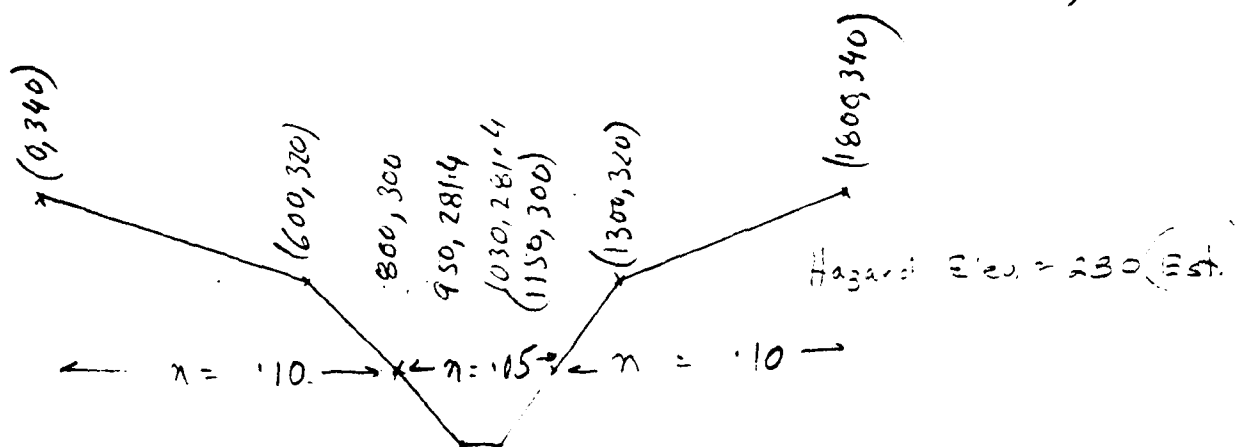 (0,340)
(600,320)
800,300
950,281.4
1030,281.4
(1150,300)
(1300,320)
(1800,340)
Hazard Elev. = 230 (Est.
n = .10
n = .05
n = .10